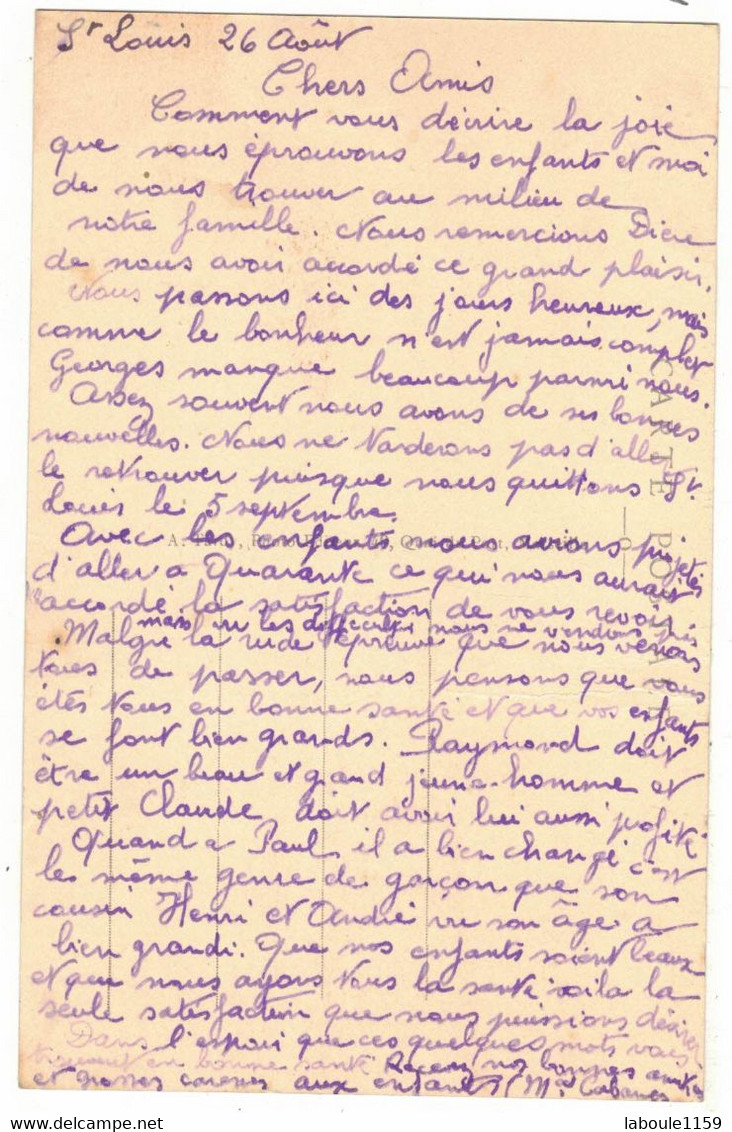 St Louis 26 Août
Chers Amis
Comment vous décrire la joie
que nous éprouvons les enfants et moi
de nous trouver au milieu de
notre famille. Nous remercions Dieu
de nous avoir accordé ce grand plaisir.
Nous passons ici des jours heureux, mais
comme le bonheur n'est jamais complet
Georges manque beaucoup parmi nous.
Assez souvent nous avons de ses bonnes
nouvelles. Nous ne tarderons pas d'aller
le retrouver puisque nous quittons St
Louis le 5 septembre.
Avec les enfants nous avions projeté
d'aller a Quarante ce qui nous aurait
accordé la satisfaction de vous revoir
mais vu les difficultés nous ne viendrons pas
Malgré la rude épreuve que nous venons
tous de passer, nous pensons que vous
êtes tous en bonne santé et que vos enfants
se font bien grands. Raymond doit
être un beau et grand jeune-homme et
petit Claude doit avoir lui aussi profité
Quand a Paul il a bien changé c'est
les même genre de garçon que son
cousin Henri et André vu son âge a
bien grandi. Que nos enfants soient beaux
et que nous ayons tous la santé voila la
seule satisfaction que nous puissions désirer
Dans l'espoir que ces quelques mots vous
trouvent en bonne santé Recevez nos bonnes amitiés
et grosses caresses aux enfants
CARTE POSTALE
laboule1159